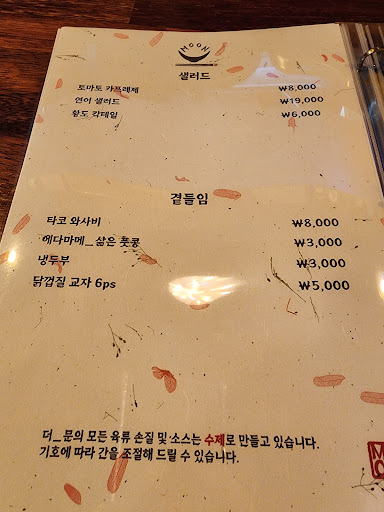 MOON
샐러드
토마토 카프레제 ₩8,000
연어 샐러드 ₩19,000
황도 칵테일 ₩6,000
곁들임
타코 와사비 ₩8,000
에다마메_삶은 풋콩 ₩3,000
냉두부 ₩3,000
닭껍질 교자 6ps ₩5,000
더_문의 모든 육류 손질 및 소스는 수제로 만들고 있습니다.
기호에 따라 간을 조절해 드릴 수 있습니다.